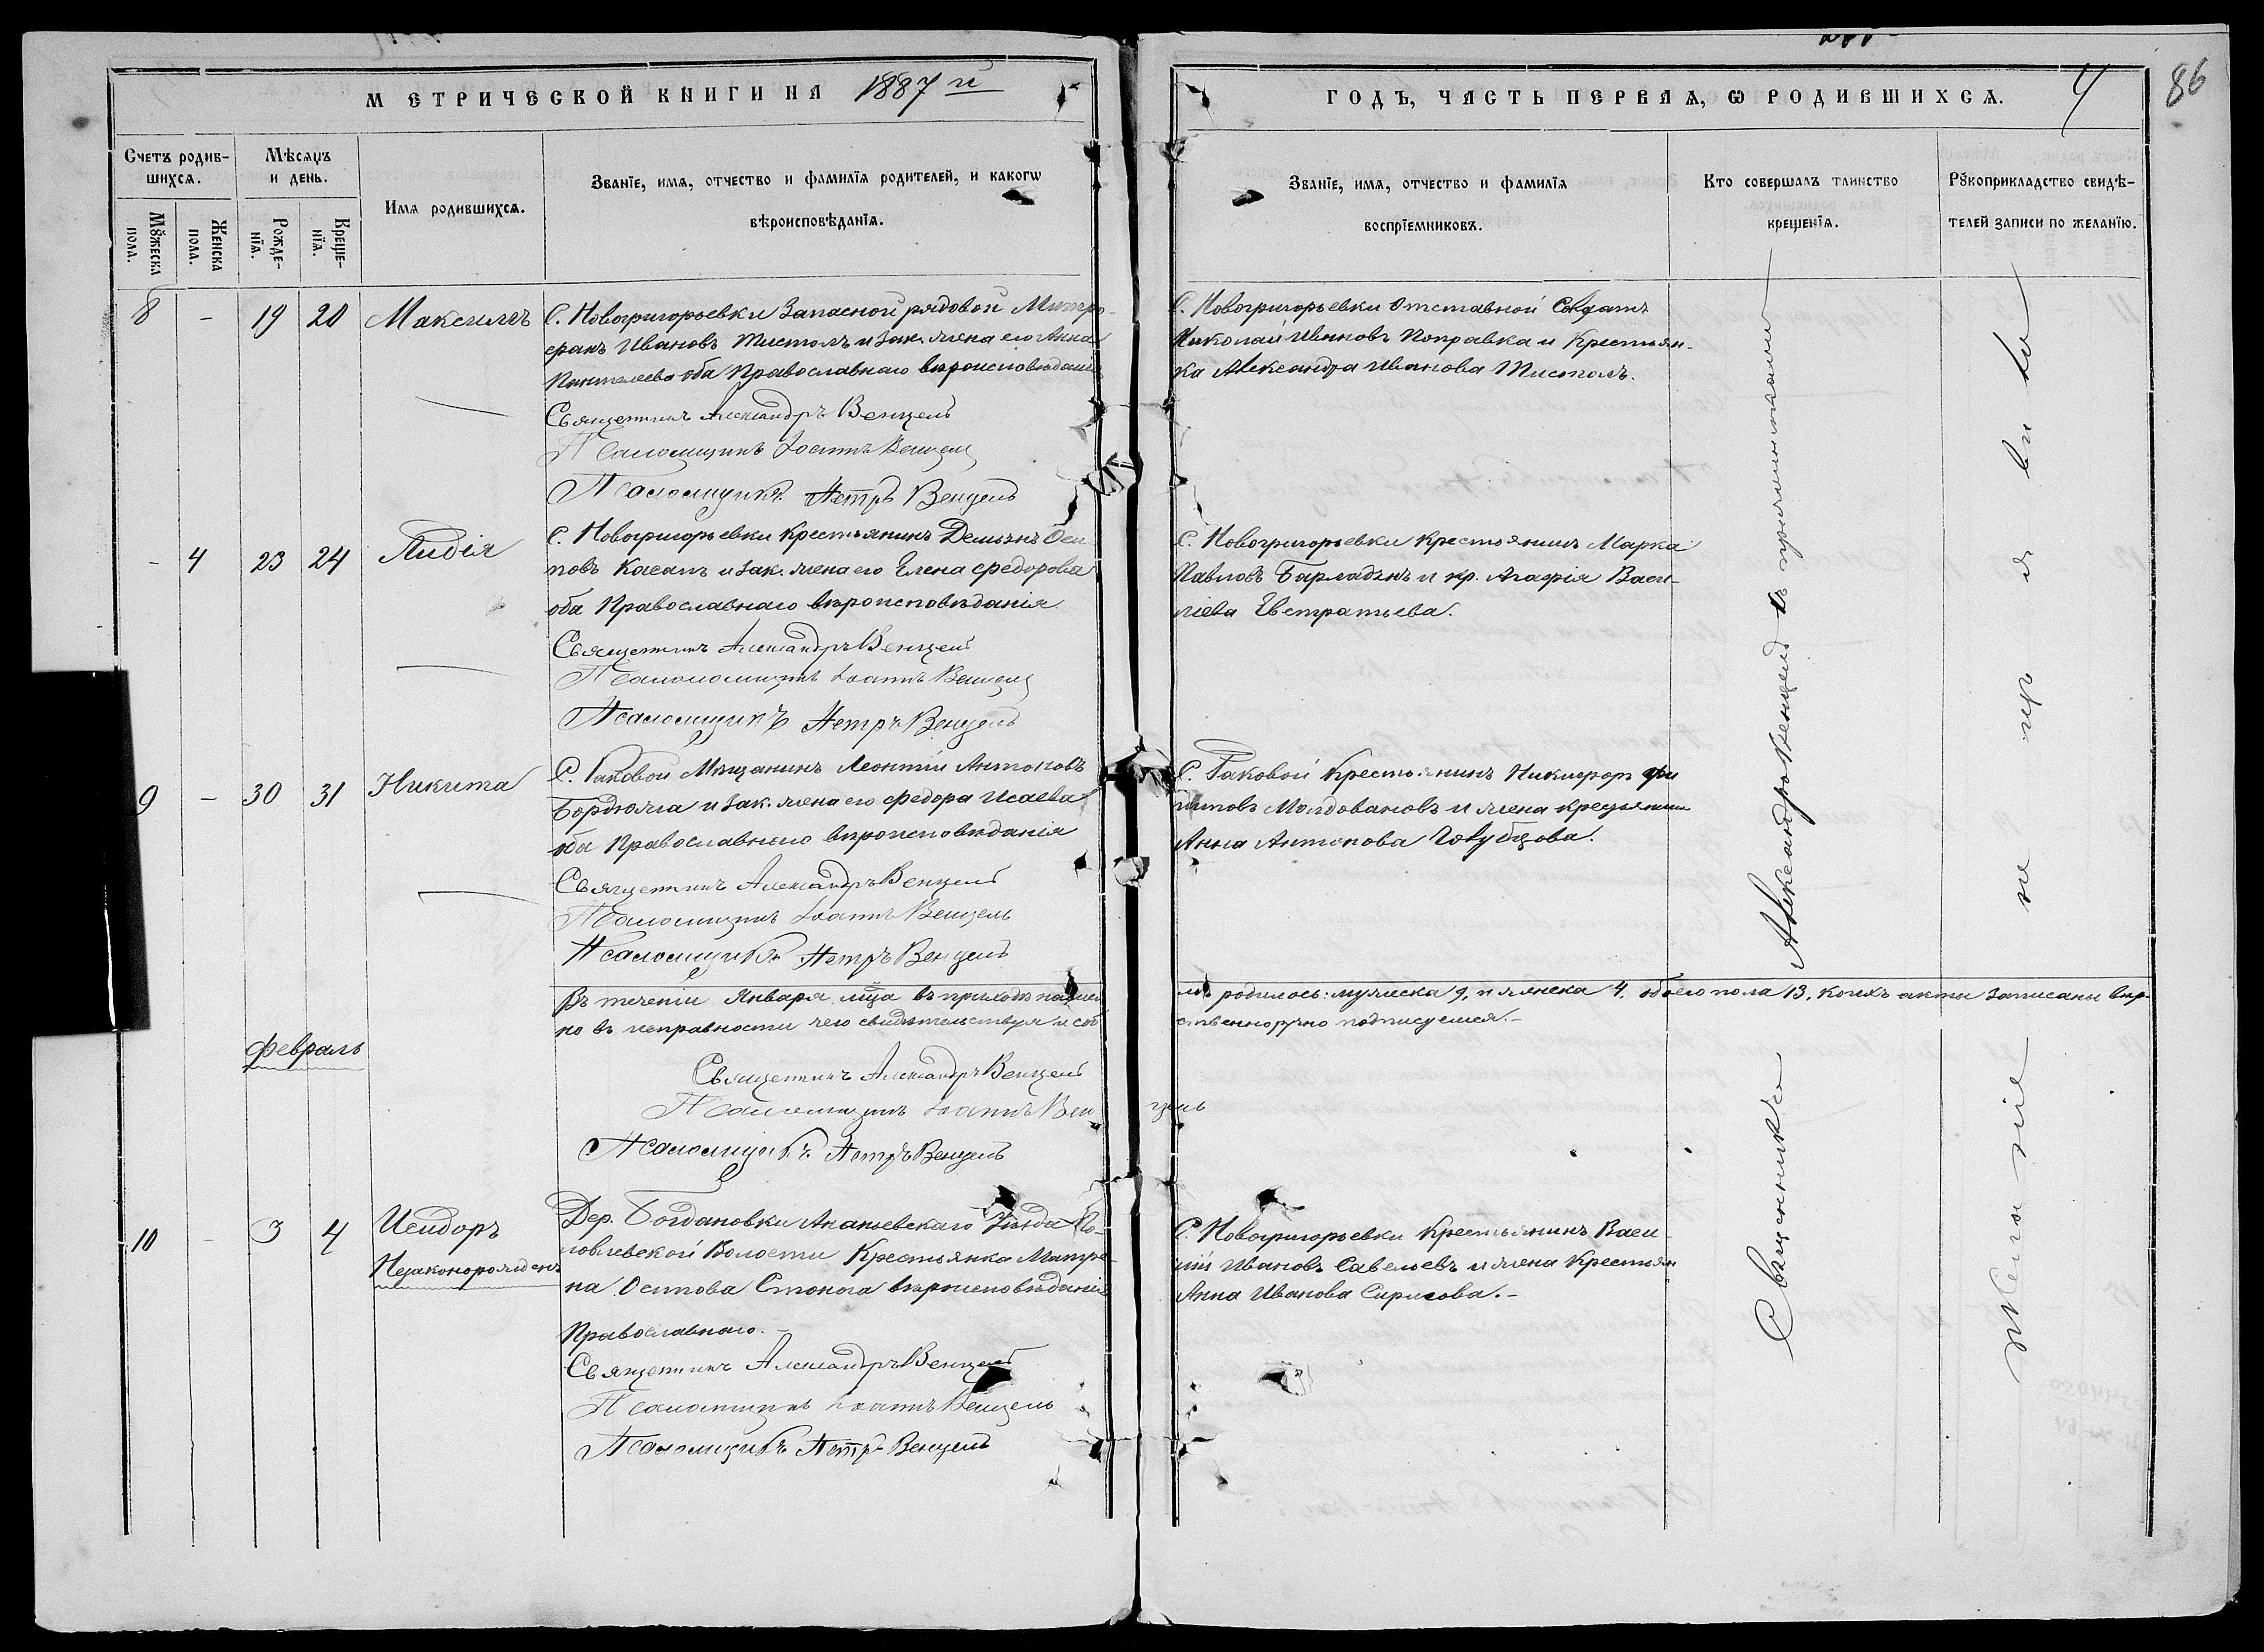 МЕТРИЧЕСКОЙ КНИГИ НА 1887й
ГОДЪ, ЧАСТЬ ПЕРВАѦ, Ѡ РОДИВШИХСѦ. 4
86
Счетъ родив-
шихсѧ.
Мѣсѧцъ
и день.
Имѧ родившихсѧ.
Званїе, имѧ, отчество и фамилїѧ родителей, и какогѡ
вѣроисповѣданїѧ.
Званїе, имѧ, отчество и фамилїѧ
воспрїемниковъ.
Кто совершалъ таинство
крещенїѧ.
Рꙋкоприкладство свидѣ-
телей записи по желанїю.
Мꙋжеска
пола.
Женска
пола.
Рожде-
нїѧ.
Креще-
нїѧ.
8 - 19 20 Максимъ
С. Новогригорьевки Запасной рядовой Митро-
фанъ Ивановъ Тистолъ и зак. жена его Анна
Пантелеева оба Православнаго вѣроисповѣданія
Священникъ Александръ Венцель
Псаломщикъ Іоаннъ Венцель
Псаломщикъ Петръ Венцель
С. Новогригорьевки Отставной Солдатъ
Николай Ивановъ Поправка и Крестьян-
ка Александра Иванова Тистолъ.
- 4 23 24 Лидія
С. Новогригорьевки Крестьянинъ Демьянъ Оси
повъ Касапъ и зак. жена его Елена Федорова
оба Православнаго вѣроисповѣданія
Священникъ Александръ Венцель
Псаломщикъ Іоаннъ Венцель
Псаломщикъ Петръ Венцель
С. Новогригорьевки Крестьянинъ Марка
Павловъ Барладянъ и кр. Агафія Васи-
ліева Евстратьева.
9 - 30 31 Никита
С. Раковой Мѣщанинъ Леонтій Антоновъ
Бордюжа и зак. жена его Федора Исаева
оба Православнаго вѣроисповѣданія
Священникъ Александръ Венцель
Псаломщикъ Іоаннъ Венцель
Псаломщикъ Петръ Венцель
С. Раковой Крестьянинъ Никифоръ Фи
липовъ Молдовановъ и жена крестьянина
Анна Антонова Голубцова.
Въ теченіи Января мца въ приходѣ нашемъ родилось: мужеска 9, и женска 4, обоего пола 13, коихъ акты записаны вѣр-
но въ исправности чего свидѣтельствуя и собственноручно подписуемся.-
Священникъ Александръ Венцель
Псаломщикъ Іоаннъ Венцель
Псаломщикъ Петръ Венцель
Февраль
10 - 3 4 Исидоръ
Незаконорожденъ
Дер. Богдановки Ананьевскаго Уѣзда
Волости Крестьянка Матре-
на Осипова Стонога вѣроисповѣданія
Православнаго.-
Священникъ Александръ Венцель
Псаломщикъ Іоаннъ Венцель
Псаломщикъ Петръ Венцель
С. Новогригорьевки Крестьянинъ Васи
лій Ивановъ Савельевъ и жена Крестьян
Анна Иванова Сирисова.-
Священникъ Александръ Венцель съ причетниками
Желаніе не предвито